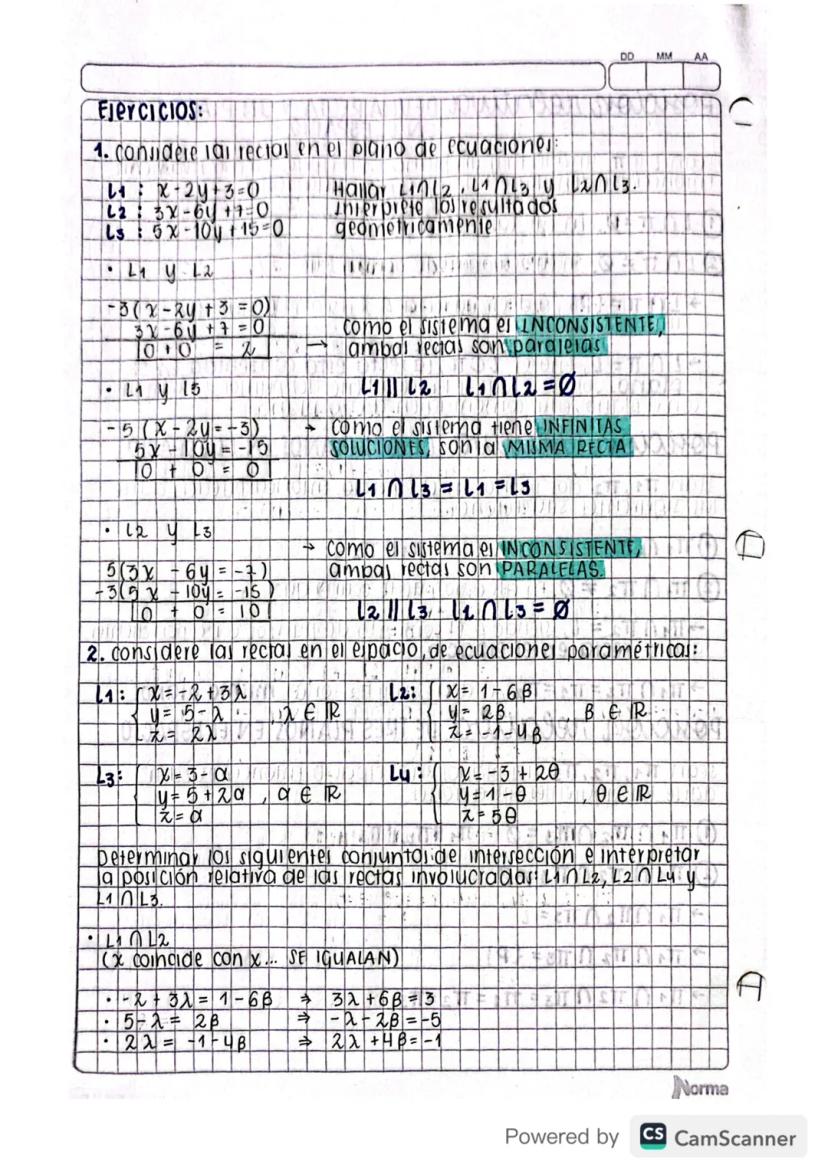 DD MM AA
Ejercicios:
1. Considere las rectas en el plano de ecuaciones:
L1 : x-2y+3=0
L2 : 3x-6y+7=0
L3 : 5x-10y+15=0
Hallar L1∩L2, L1∩L3 y L2∩L3.
Interprete los resultados
geométricamente
• L1 y L2
-3(x-2y+3=0)
3x-6y+7=0
0+0 = 2
→ Como el sistema es INCONSISTENTE,
ambas rectas son paralelas
L1 || L2 L1∩L2=Ø
• L1 y L5
-5(x-2y=-3)
5x-10y=-15
0 + 0 = 0
→ Como el sistema tiene INFINITAS
SOLUCIONES, son la MISMA RECTA
L1 ∩ L3 = L1 = L3
• L2 y L3
5(3x - 6y = -7)
-3(5x - 10y = -15)
0 + 0 = 10
→ Como el sistema es INCONSISTENTE,
ambas rectas son PARALELAS.
L2 || L3 L2 ∩ L3 = Ø
2. Considere las rectas en el espacio, de ecuaciones paramétricas:
L1: { x=-2+3λ
y= 5-λ , λ ∈ IR
z= 2λ
L2: { x= 1-6β
y= 2β β ∈ IR
z=-1-4β
L3: { x=3-α
y=5+2α , α ∈ IR
z=α
L4: { x=-3+2θ
y=1-θ , θ ∈ IR
z=5θ
Determinar los siguientes conjuntos de intersección e interpretar
la posición relativa de las rectas involucradas: L1∩L2, L2∩L4 y
L1∩L3.
• L1∩L2
(x coincide con x... SE IGUALAN)
• -2+3λ = 1-6β ⇒ 3λ+6β=3
• 5-λ = 2β ⇒ -λ-2β=-5
• 2λ = -1-4β ⇒ 2λ+4β=-1
Norma
Powered by CS CamScanner